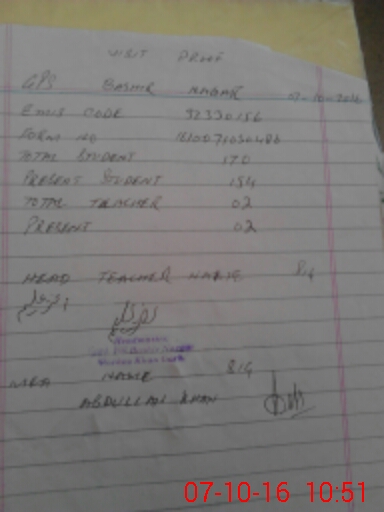 VISIT PROOF
GPS BASHIR NAGAR 07-10-2016
EMIS CODE 32330156
FORM NO 1610071030486
TOTAL STUDENT 170
PRESENT STUDENT 154
TOTAL TEACHER 02
PRESENT 02
HEAD TEACHER NAME SIG
MEA NAME SIG
ABDULLAH KHAN
07-10-16 10:51